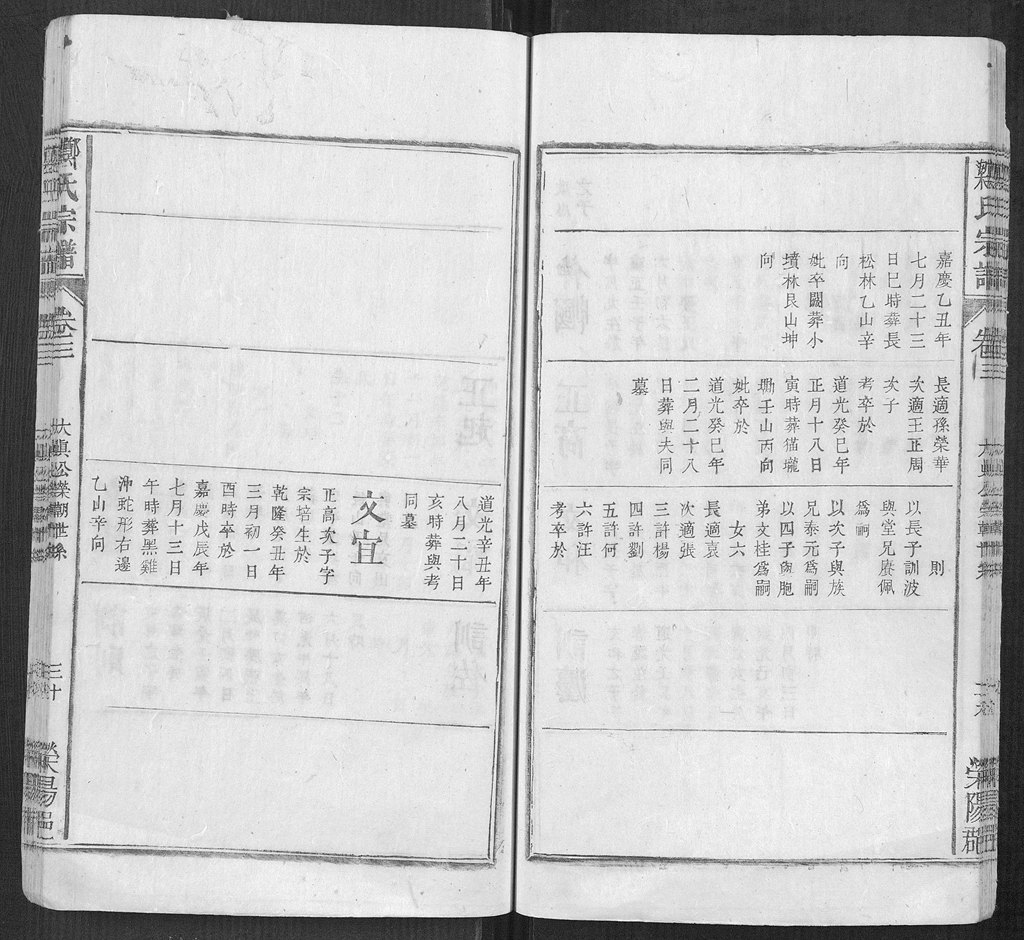 鄭氏宗譜
卷三
滎陽郡
嘉慶乙丑年
七月二十三
日巳時葬長
松林乙山辛
向
妣卒闕葬小
墳林艮山坤
向
長適孫榮華
次適王正周
次子
考卒於
道光癸巳年
正月十八日
寅時葬猫壠
塝壬山丙向
妣卒於
道光癸巳年
二月二十八
日葬與夫同
墓
則
以長子訓波
與堂兄賡佩
為嗣
以次子與族
兄泰元為嗣
以四子與胞
弟文桂為嗣
女六
長適袁
次適張
三許楊
四許劉
五許何
六許汪
考卒於
道光辛丑年
八月二十日
亥時葬與考
同墓
文宜
正高次子字
宗培生於
乾隆癸丑年
三月初一日
酉時卒於
嘉慶戊辰年
七月十三日
午時葬黑雞
沖蛇形右邊
乙山辛向
鄭氏宗譜
卷三
三十